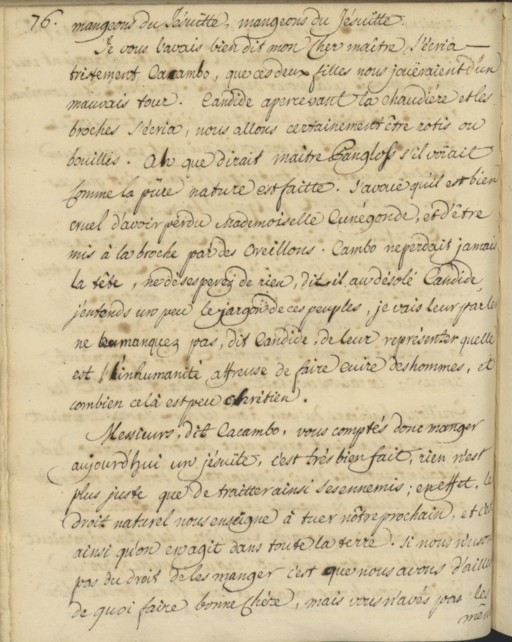 76. mangeons du Jésuitte, mangeons du Jésuitte.
Je vous l'avais bien dit mon Cher maître, s'écria
tristement Cacambo, que ces deux filles nous joüeraient d'un
mauvais tour. Candide apercevant la chaudiére et les
broches s'écria, nous allons certainement être rotis ou
bouillis. Ah que dirait maître Pangloss s'il voïait
comme la pûre nature est faitte. J'avoüe qu'il est bien
cruel d'avoir perdu Mademoiselle Cunégonde, et d'être
mis à la broche par des Oreillons. Cambo ne perdait jamais
la tête, ne désesperez de rien, dit-il au désolé Candide,
j'entends un peu le jargon de ces peuples, je vais leur parler
ne manquez pas, dit Candide, de leur représenter quelle
est l'inhumanité affreuse de faire cuire des hommes, et
combien celà est peu chrétien.
Messieurs, dit Cacambo, vous comptés donc manger
aujourd'hui un jésuite, c'est très bien fait, rien n'est
plus juste que de traitter ainsi ses ennemis; en effet, le
droit naturel nous enseigne à tuer nôtre prochain, et c'est
ainsi qu'on en agit dans toute la terre. Si nous n'usons
pas du droit de les manger c'est que nous avons d'ailleurs
de quoi faire bonne Chére, mais vous n'avés pas les
mêm